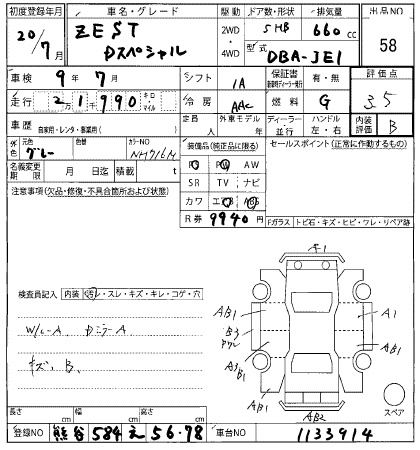 初度登録年月 車名・グレード 駆動 ドア数・形状 排気量 出品NO
20/7月 ZEST Dスペシャル 2WD・4WD 5HB 660cc 58
型式 DBA-JE1
車検 9年7月 シフト IA 保証書 有・無 評価点
走行 21990 キロ・マイル 冷房 AAC 燃料 G 3.5
車歴 自家用・レンタ・事業用( ) 定員 人 外車モデル 年 ディーラー・並行 ハンドル 左・右 内装評価 B
外色 元色 グレー 色替 カラーNO NH716M 装備品(純正品に限る) セールスポイント(正常に作動するもの)
名義変更期限 月 日迄 積載 t PS PW AW
SR TV ナビ
注意事項(欠品・修復・不具合箇所および状態) カワ エアB ABS
R券 9940円
Fガラス トビ石・キズ・ヒビ・ワレ・リペア跡
A1
検査員記入 内装 汚レ・スレ・キズ・キレ・コゲ・穴
AB1 A1
W/L-A DミラーA
B3 ワレ AB1
キズ、B、
A3 B1
AB1 AB1
AB2
スペア
長さ cm 幅 cm 高さ cm
登録NO 熊谷 584 え 56-78 車台NO 1133914